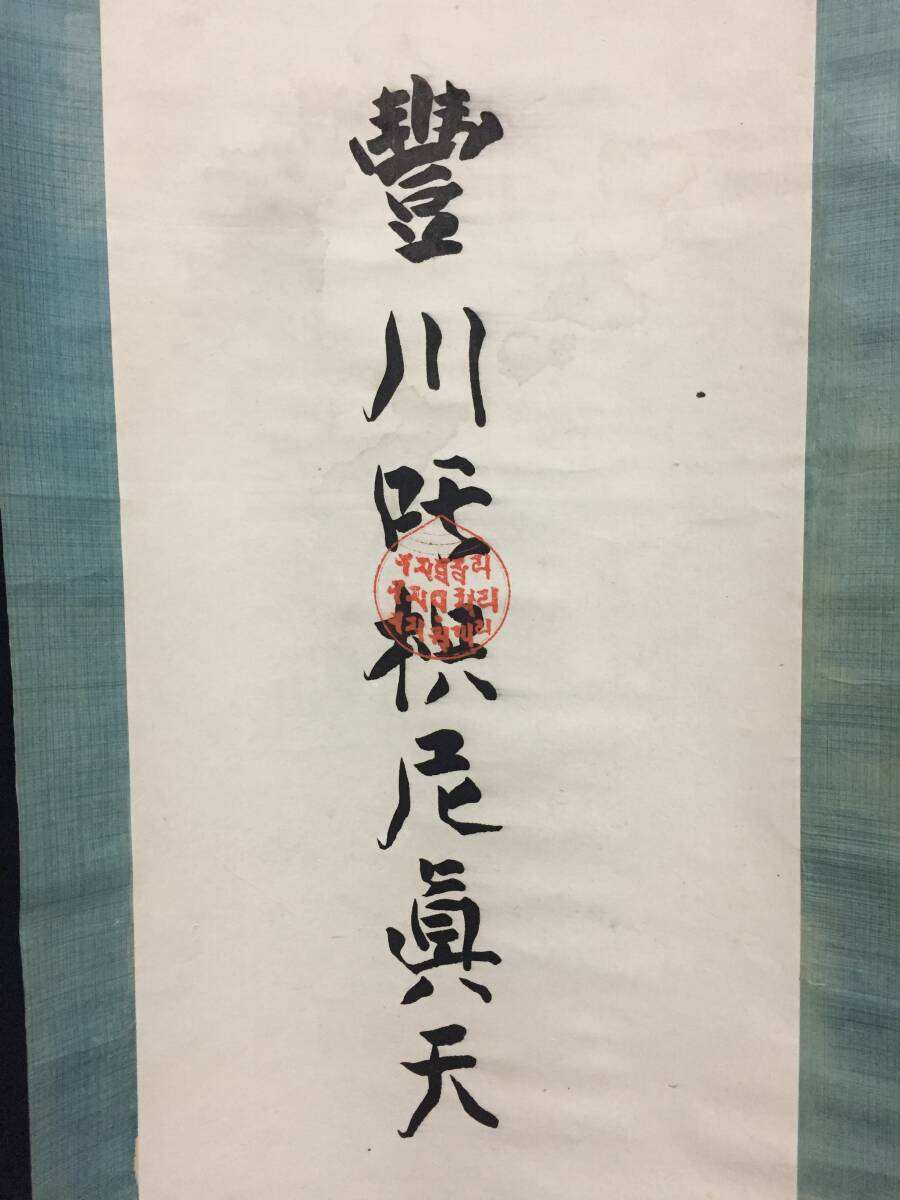 豐川吒枳尼眞天